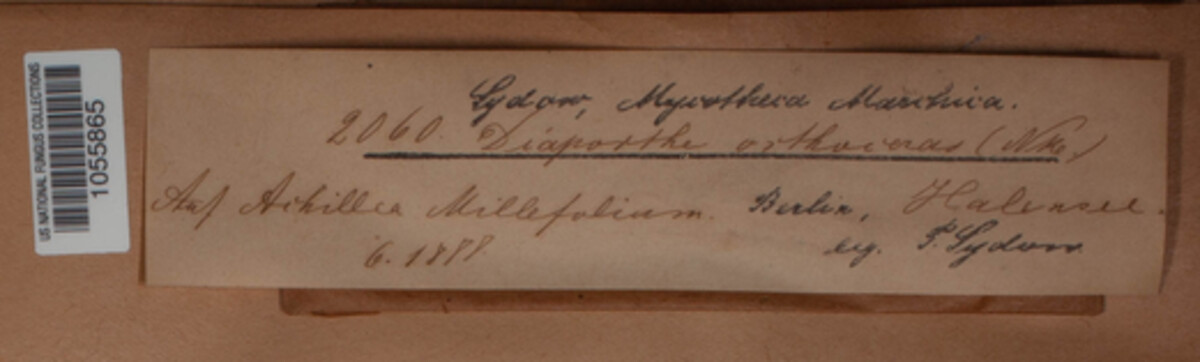 US NATIONAL FUNGUS COLLECTIONS
1055865
Sydow, Mycotheca Marchica.
2060. Diaporthe orthoceras (Nke.)
Auf Achillea Millefolium. Berlin, Halensee.
6. 1888 leg. P. Sydow